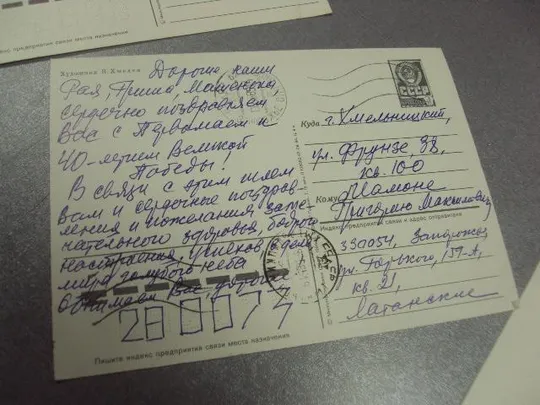 Художник
Дорогие наши
Рая, Гриша, Машенька
сердечно поздравляем
вас с Первомаем и
40-летием Великой
Победы!
В связи с этим шлем
вам и сердечные поздрав
ления и пожелания заме
чательного здоровья, бодрого
настроения, успехов в деле
мира голубого неба
Обнимаем Вас, дорогие
280077
Пишите индекс предприятия связи места назначения
СССР
Куда г. Хмельницкий,
ул. Фрунзе, 38,
кв. 100
Кому
Григорию Максимовичу
Индекс предприятия связи и адрес отправителя
330054, Запорожье
ул. Горького, 159-А,
кв. 21,